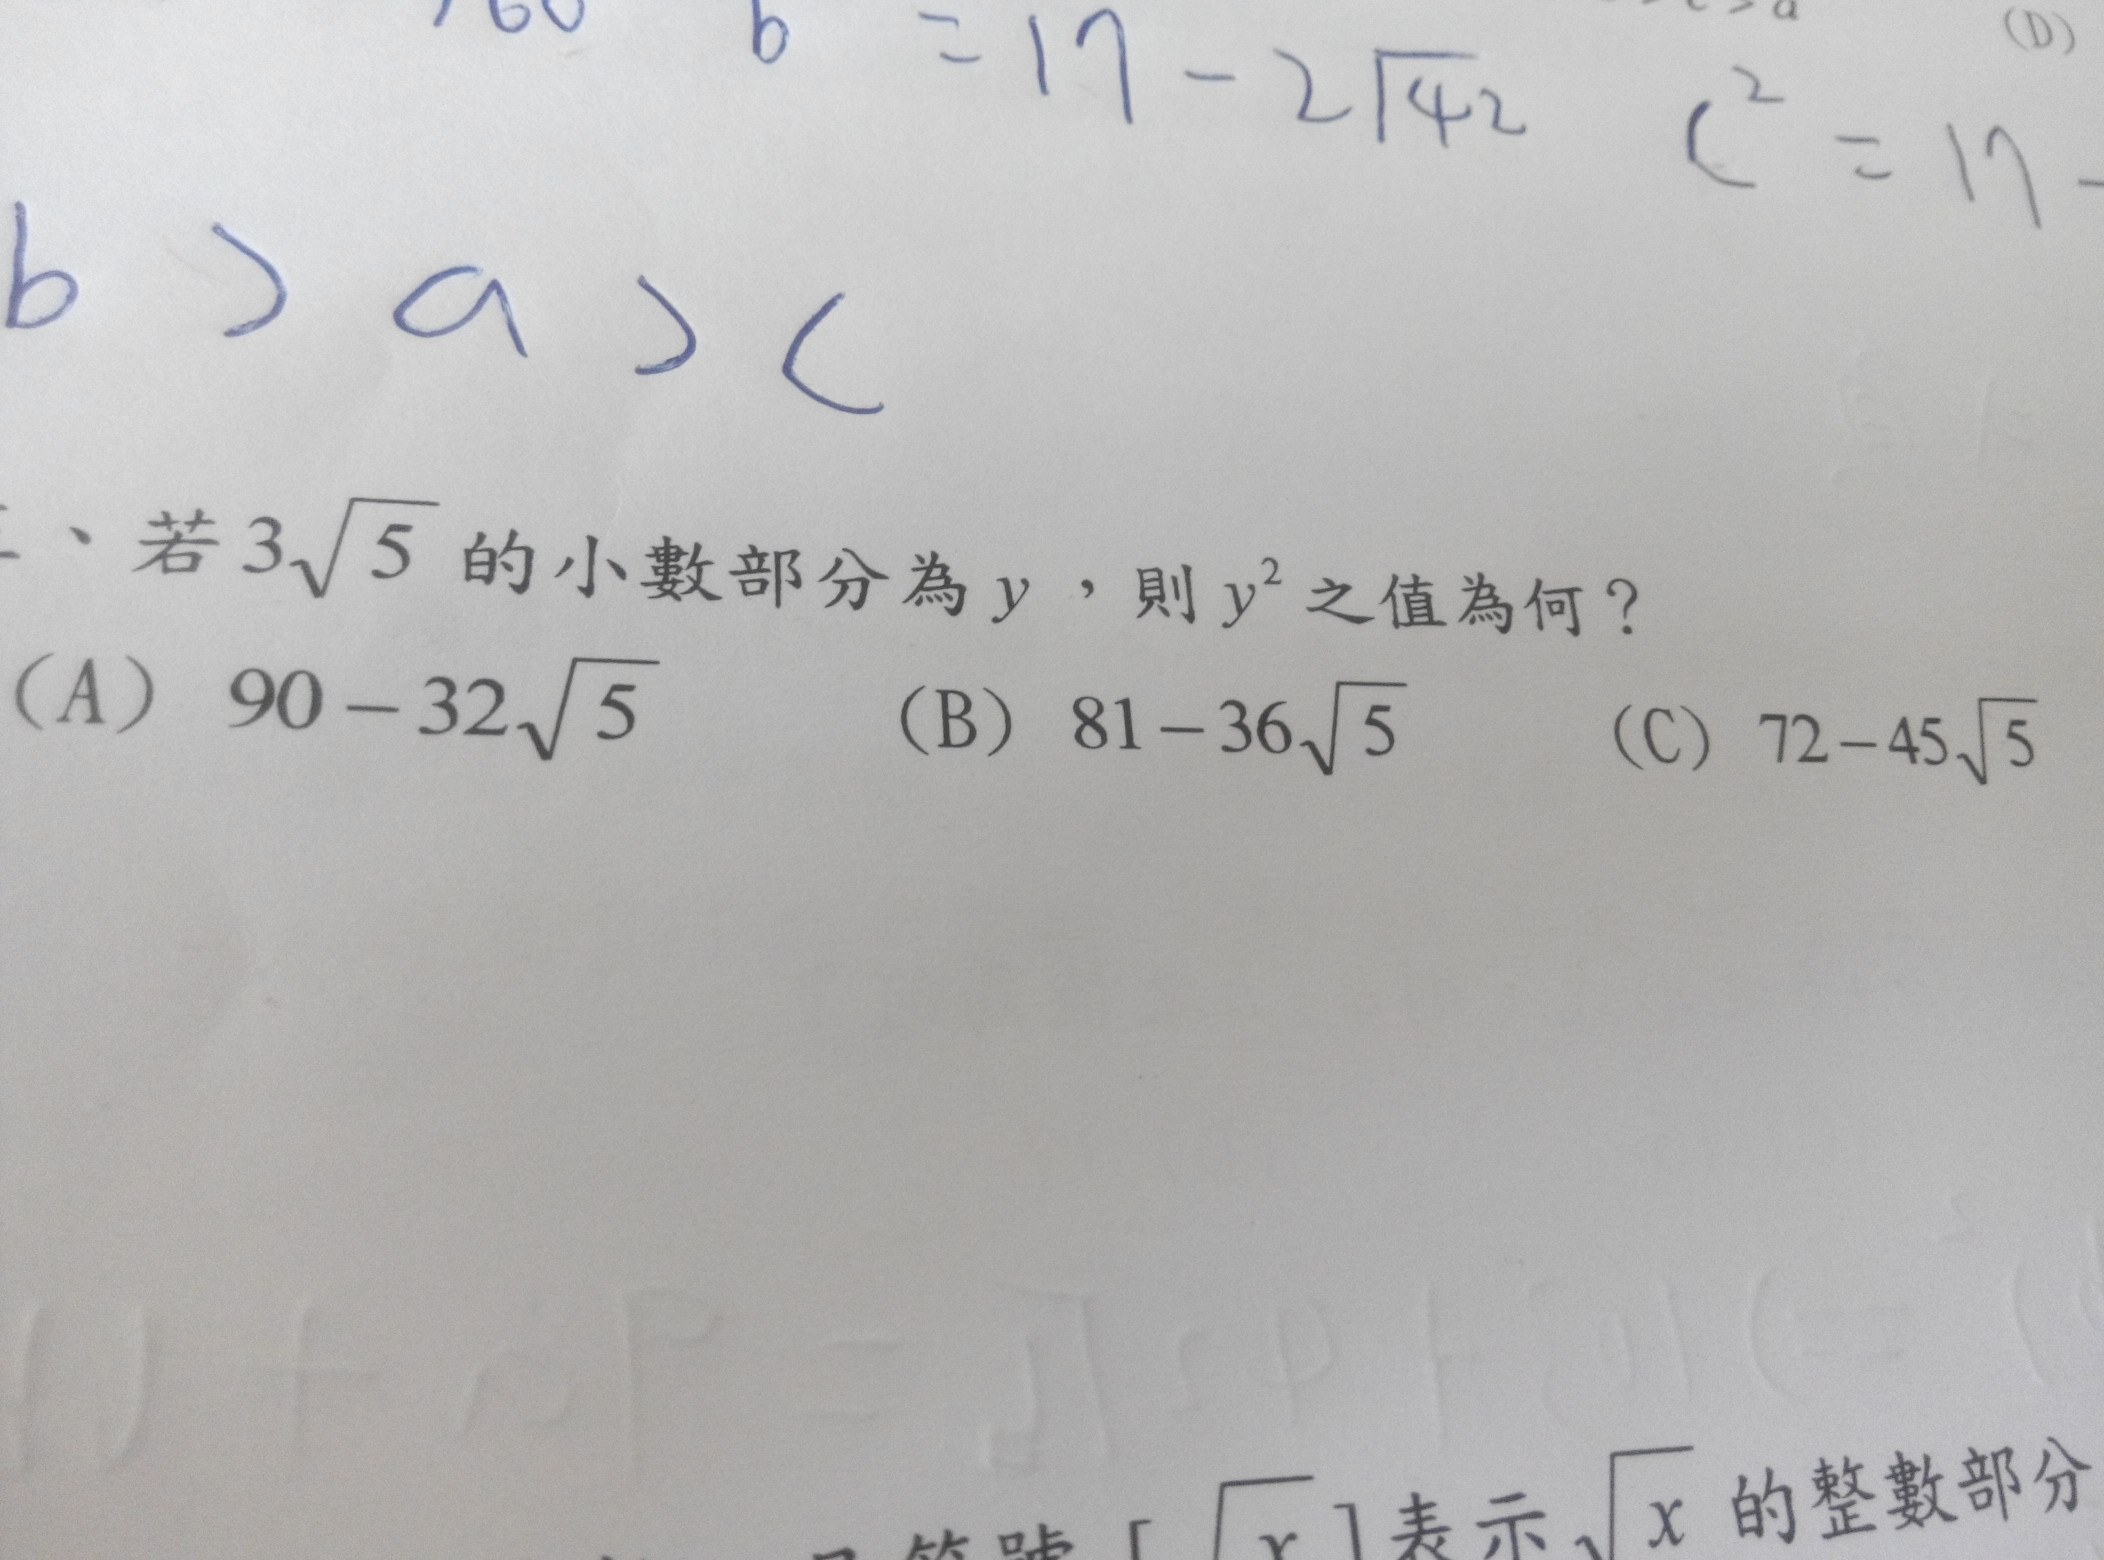 b = 17 - 2√42
(D)
c² = 17 -
b > a > c
、若 3√5 的小數部分為 y ，則 y² 之值為何？
(A) 90 - 32√5 (B) 81 - 36√5 (C) 72 - 45√5
[√x] 表示 √x 的整數部分